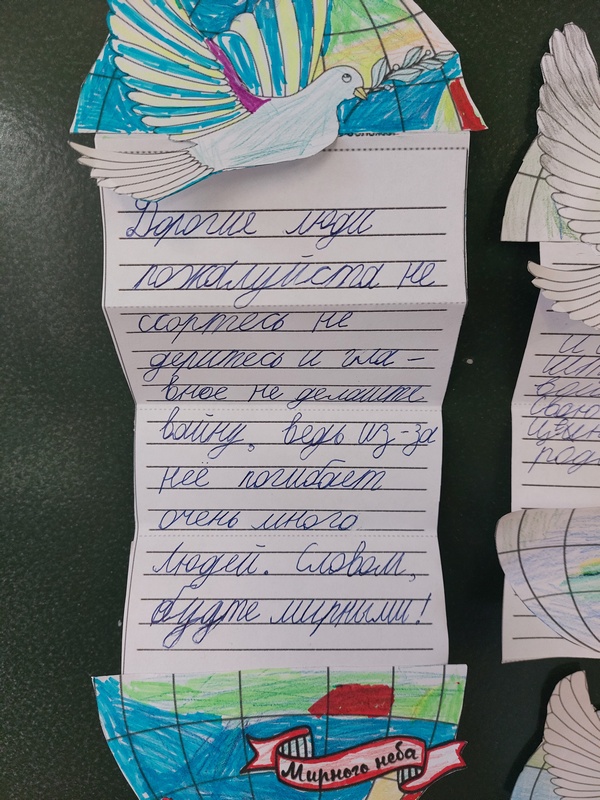 Дорогие люди
пожалуйста не
ссортесь не
деритесь и гла-
вное не делайте
войну, ведь из-за
неё погибает
очень много
людей. Словом,
будте мирными!
Мирного неба